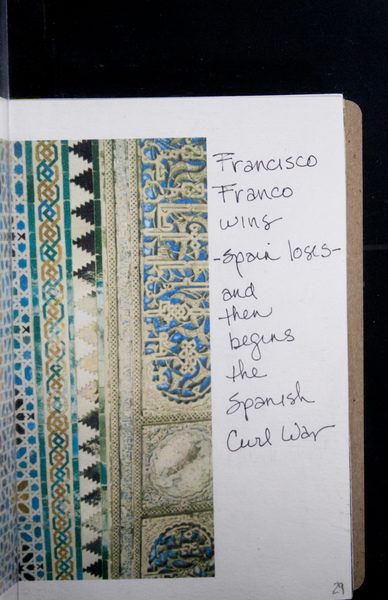 Francisco
Franco
wins
-Spain loses-
and
then
begins
the
Spanish
Civil War
29